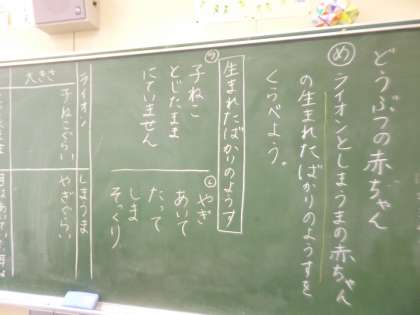 どうぶつの赤ちゃん
め ライオンとしまうまの赤ちゃん
の生まれたばかりのようすを
くらべよう。
生まれたばかりのようす
子ねこ
とじたまま
にていません
やぎ
あいて
たって
しま
そっくり
ライオン
しまうま
大きさ
子ねこぐらい
やぎぐらい